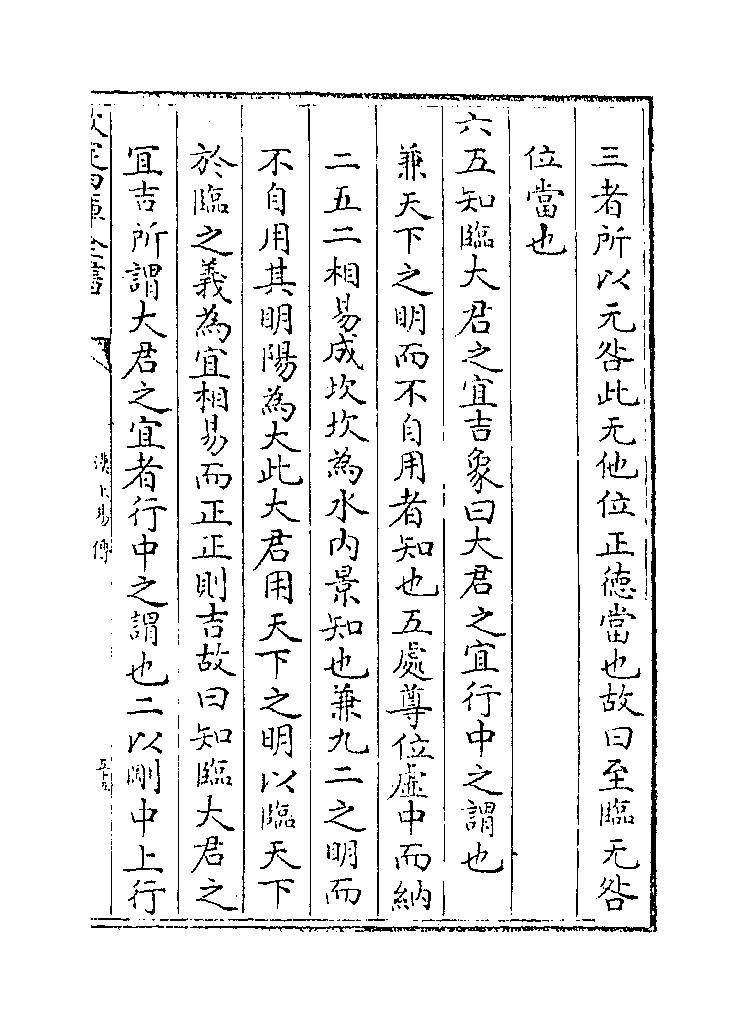 三者所以元咎此无他位正德當也故曰至臨无咎
位當也
六五知臨大君之宜吉象曰大君之宜行中之謂也
兼天下之明而不自用者知也五處尊位虛中而納
二五二相易成坎坎為水内景知也兼九二之明而
不自用其明陽為大此大君用天下之明以臨天下
於臨之義為宜相易而正正則吉故曰知臨大君之
宜吉所謂大君之宜者行中之謂也二以剛中上行
欽定四庫全書
漢上易傳